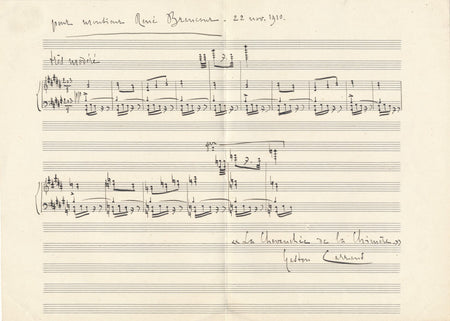 pour monsieur René Brancour - 22 nov. 1910.
très modéré
« La Chevauchée de la Chimère »
Gaston Carraud